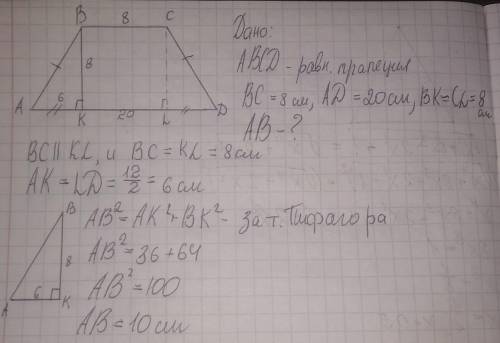 B 8 C
8
A 6 K 20 L D
Дано:
ABCD - равн. трапеция
BC = 8 см, AD = 20 см, BK = CL = 8 см
AB - ?
BC || KL, и BC = KL = 8 см
AK = LD = 12/2 = 6 см
B
8
A 6 K
AB² = AK² + BK² - За т. Пифагора
AB² = 36 + 64
AB² = 100
AB = 10 см